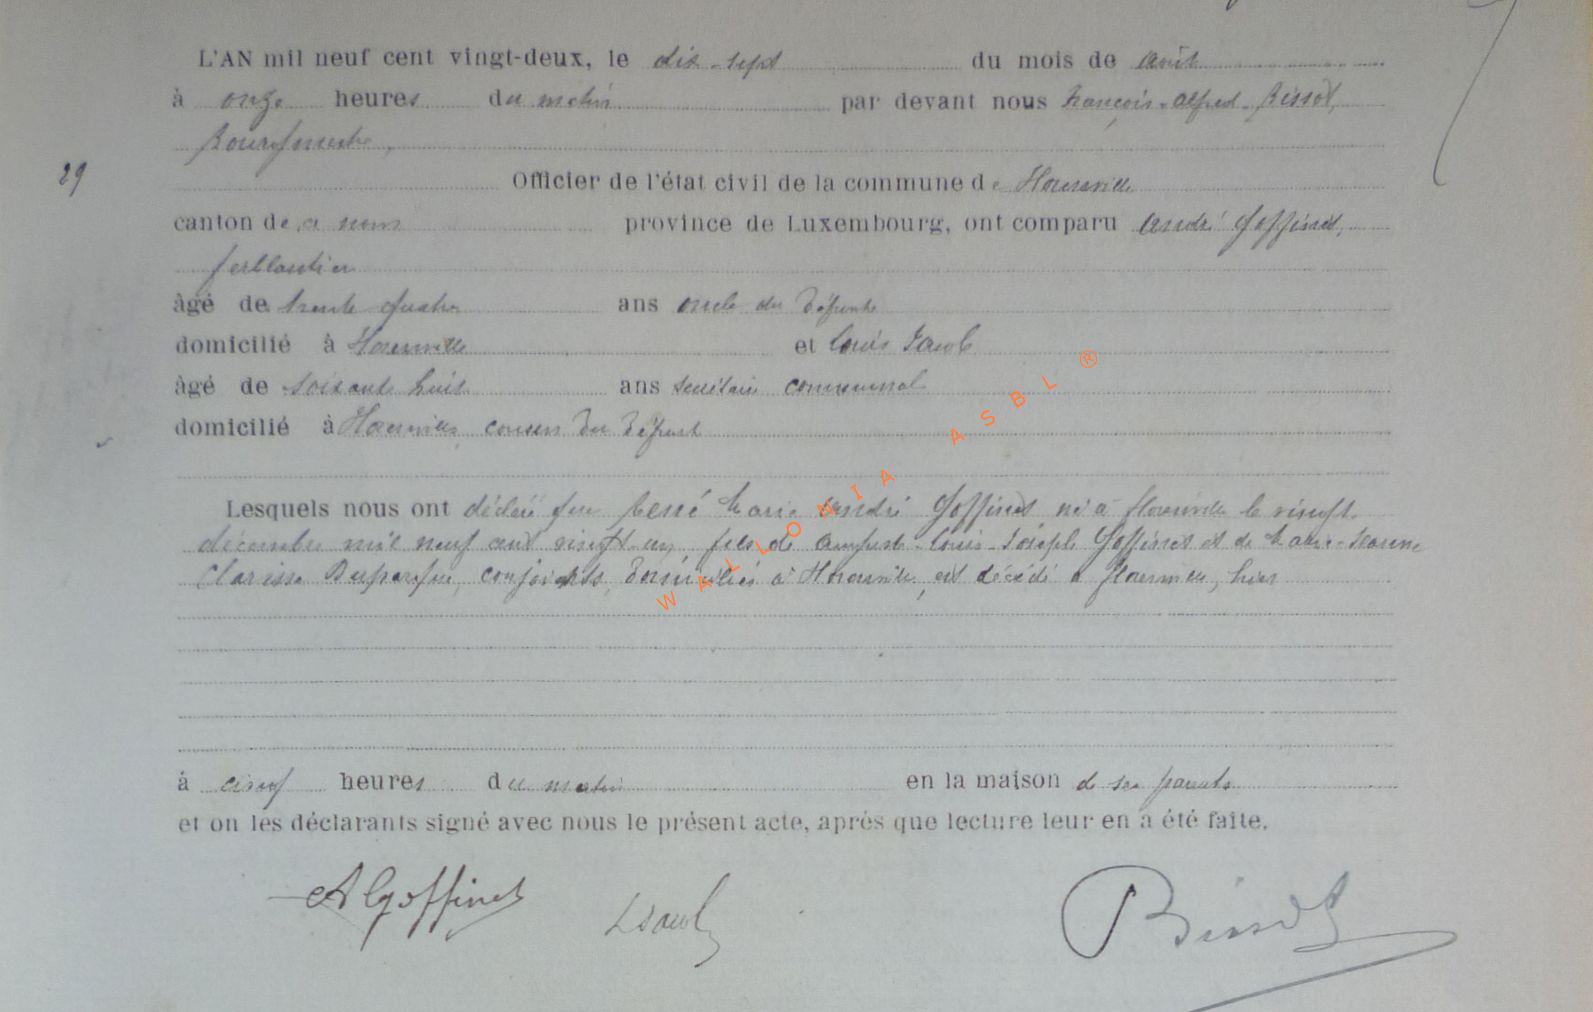 L'AN mil neuf cent vingt-deux, le dix-sept du mois de août
à onze heures du matin par devant nous François-Alfred Bissot,
Bourgmestre,
29
Officier de l'état civil de la commune de Florenville
canton de province de Luxembourg, ont comparu André Goffinet,
ferblantier
âgé de trente quatre ans oncle du défunt
domicilié à Florenville et Louis Jacob
âgé de soixante huit ans secrétaire communal
domicilié à Florenville, cousin du défunt
Lesquels nous ont déclaré que René Marie André Goffinet né à Florenville le vingt
décembre mil neuf cent vingt-un, fils de Auguste-Louis-Joseph Goffinet et de Marie-Jeanne
Clarisse conjoints, domiciliés à Florenville, est décédé à Florenville, hier
à cinq heures du matin en la maison de ses parents
et on les déclarants signé avec nous le présent acte, après que lecture leur en a été faite.
A Goffinet LJacob Bissot
WALLONIA ASBL ®